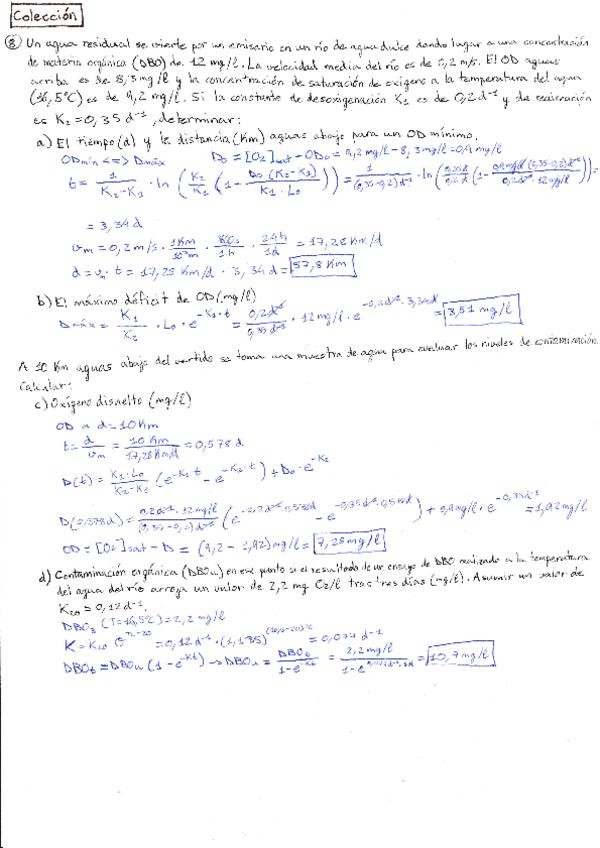 Colección
⑧ Un agua residual se vierte por un emisario en un río de agua dulce dando lugar a una concentración
de materia orgánica (DBO) de 12 mg/l. La velocidad media del río es de 0,2 m/s. El OD aguas
arriba es de 8,3 mg/l y la concentración de saturación de oxígeno a la temperatura del agua
(16,5°C) es de 9,2 mg/l. Si la constante de desoxigenación K₁ es de 0,2 d⁻¹ y de reaireación
es K₂ = 0,35 d⁻¹, determinar:
a) El tiempo (d) y la distancia (Km) aguas abajo para un OD mínimo.
ODmín <=> Dmáx D₀ = [O₂]sat - OD₀ = 9,2 mg/l - 8,3 mg/l = 0,9 mg/l
t = 1/(K₂-K₁) · ln (K₂/K₁ (1 - D₀(K₂-K₁)/(K₁·L₀))) = 1/((0,35-0,2)d⁻¹) · ln (0,35d⁻¹/0,2d⁻¹ (1 - 0,9mg/l (0,35-0,2)d⁻¹/(0,2d⁻¹·12mg/l))) =
= 3,34 d
vm = 0,2 m/s · 1Km/10³m · 3600s/1h · 24h/1d = 17,28 Km/d
d = vm · t = 17,28 Km/d · 3,34 d = 57,8 Km
b) El máximo déficit de OD (mg/l)
Dmáx = K₁/K₂ · L₀ · e^(-K₁·t) = 0,2d⁻¹/0,35d⁻¹ · 12 mg/l · e^(-0,2d⁻¹·3,34d) = 3,51 mg/l
A 10 Km aguas abajo del vertido se toma una muestra de agua para evaluar los niveles de contaminación.
Calcular:
c) Oxígeno disuelto (mg/l)
OD a d = 10 Km
t = d/vm = 10 Km/17,28 Km/d = 0,578 d
D(t) = K₁·L₀/(K₂-K₁) (e^(-K₁·t) - e^(-K₂·t)) + D₀ · e^(-K₂
D(0,578d) = 0,2d⁻¹·12mg/l/((0,35-0,2)d⁻¹) (e^(-0,2d⁻¹·0,578d) - e^(-0,35d⁻¹·0,578d)) + 0,9mg/l · e^(-0,35d⁻¹ = 1,92 mg/l
OD = [O₂]sat - D = (9,2 - 1,92) mg/l = 7,28 mg/l
d) Contaminación orgánica (DBOu) en ese punto si el resultado de un ensayo de DBO realizado a la temperatura
del agua del río arroja un valor de 2,2 mg O₂/l tras tres días (mg/l). Asumir un valor de
K₂₀ = 0,12 d⁻¹.
DBO₃ (T=16,5°C) = 2,2 mg/l
K = K₂₀ θ^(T-20) = 0,12 d⁻¹ · (1,135)^(16,5-20)°C = 0,077 d⁻¹
DBOt = DBOu (1 - e^(-Kt)) → DBOu = DBOt/(1-e^(-Kt)) = 2,2 mg/l/(1-e^(-0,077d⁻¹·3d)) = 10,7 mg/l